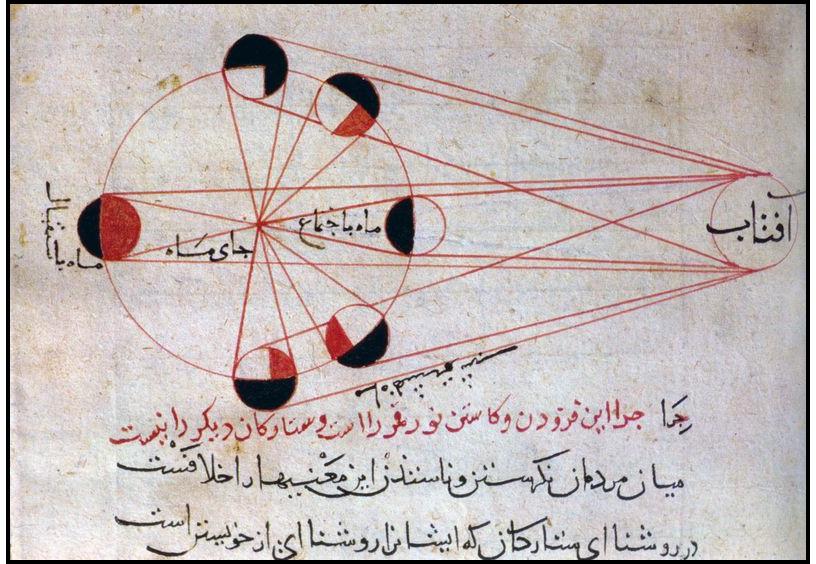 افتاب
ماه باجتماع
جای ماه
ماه باستقبال
چرا چرا این فزودن و کاستن نور قمر را است و ستارکان دیکر را نیست
میان مردمان نکرستن و ناسندن این معنیها را خلافست
در روشنا ای ستارکان که ایشانرا روشنا ای از خویشتن است